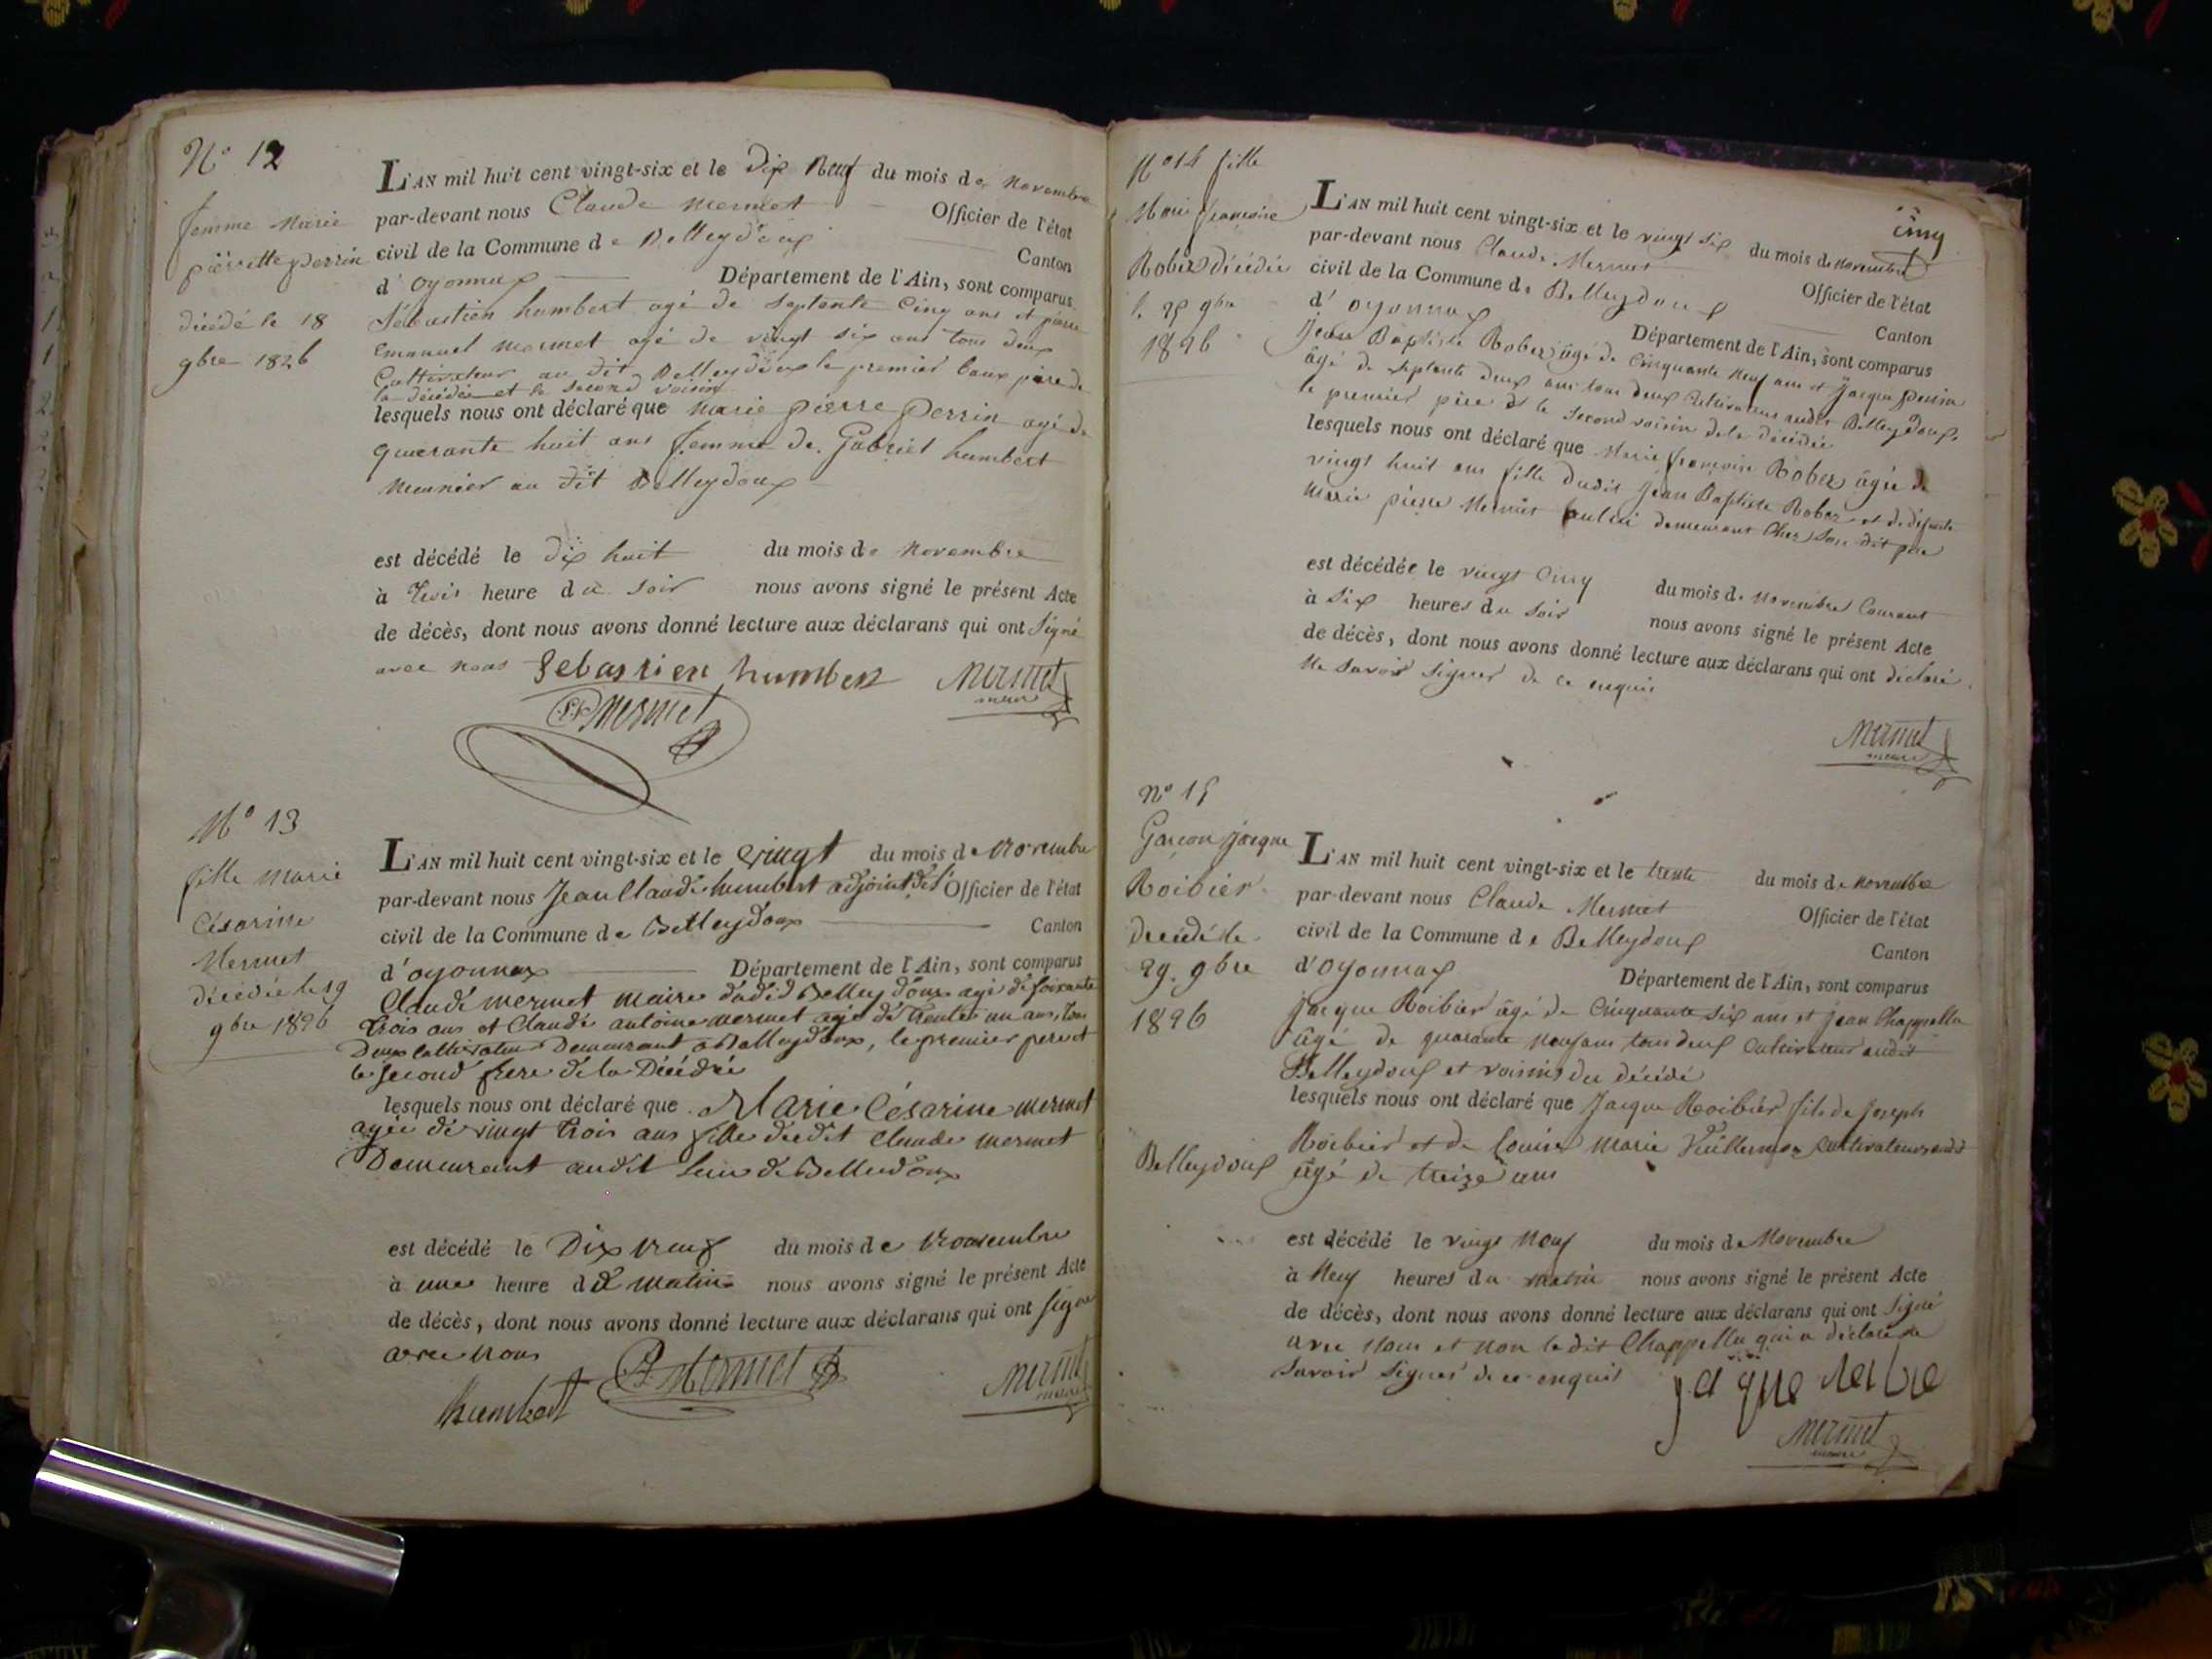 N° 12
femme Marie
pierrette perrin
décédé le 18
9bre 1826
L'AN mil huit cent vingt-six et le dix neuf du mois de novembre
par-devant nous Claude mermet Officier de l'état
civil de la Commune de Belleydoux Canton
d'oyonnax Département de l'Ain, sont comparus
Sébastien humbert agé de septante cinq ans et pierre
Emanuel mermet agé de vingt six ans tous deux
Cultivateur au dit Belleydoux le premier beau père de
la décédée et le second voisin
lesquels nous ont déclaré que marie pierre perrin agé de
quarante huit ans femme de Gabriel humbert
meunier au dit Belleydoux
est décédé le dix huit du mois de novembre
à trois heure du soir nous avons signé le présent Acte
de décès, dont nous avons donné lecture aux déclarans qui ont signé
avec nous Sebastien humbert Mermet
maire
Mermet
N° 13
fille marie
Césarine
Mermet
décédée le 19
9bre 1826
L'AN mil huit cent vingt-six et le vingt du mois de novembre
par-devant nous Jean Claude humbert adjoint de l' Officier de l'état
civil de la Commune de Belleydoux Canton
d'oyonnax Département de l'Ain, sont comparus
Claude mermet maire dudid Belleydoux agé de soixante
trois ans et Claude antoine mermet agé de trente un ans, tous
Deux cultivateur Demeurant a Belleydoux, le premier pere et
le second frere de la Décédée
lesquels nous ont déclaré que Marie Césarine mermet
agée de vingt trois ans fille dudit Claude mermet
Demeurant audit lieu de Belleydoux
est décédé le Dix neuf du mois de novembre
à une heure du matin nous avons signé le présent Acte
de décès, dont nous avons donné lecture aux déclarans qui ont signé
avec nous
humbert Mermet Mermet
maire
N° 14 fille
Marie françoise
Robez décédée
le 25 9bre
1826
cinq
L'AN mil huit cent vingt-six et le vingt six du mois de novembre
par-devant nous Claude Mermet Officier de l'état
civil de la Commune de Belleydoux Canton
d'oyonnax Département de l'Ain, sont comparus
Jean Baptiste Robez âgé de Cinquante neuf ans et Jacque perrin
âgé de septante deux ans tous deux Cultivateurs audit Belleydoux
le premier père et le second voisin dela décédée
lesquels nous ont déclaré que Marie françoise Robez âgée de
vingt huit ans fille dudit Jean Baptiste Robez et de défunte
Marie pierre Mermet demeurant Chez son dit père
est décédée le vingt Cinq du mois de Novembre Courant
à Six heures du Soir nous avons signé le présent Acte
de décès, dont nous avons donné lecture aux déclarans qui ont déclaré
ne savoir signer de ce enquis
Mermet
maire
N° 15
Garçon Jacque
Roibier
décédé le
29. 9bre
1826
Belleydoux
L'AN mil huit cent vingt-six et le trente du mois de novembre
par-devant nous Claude Mermet Officier de l'état
civil de la Commune de Belleydoux Canton
d'Oyonnax Département de l'Ain, sont comparus
Jacque Roibier âgé de Cinquante six ans et Jean Chappellu
âgé de quarante neuf ans tous deux Cultivateur audit
Belleydoux et voisins du décédé
lesquels nous ont déclaré que Jacque Roibier fils de Joseph
Roibier et de Louise Marie Vuillermoz Cultivateurs audit
âgé de treize ans
est décédé le vingt neuf du mois de Novembre
à Neuf heures du matin nous avons signé le présent Acte
de décès, dont nous avons donné lecture aux déclarans qui ont signé
avec Nous et non le dit Chappellu qui a déclaré ne
savoir signer de ce enquis
Mermet
maire